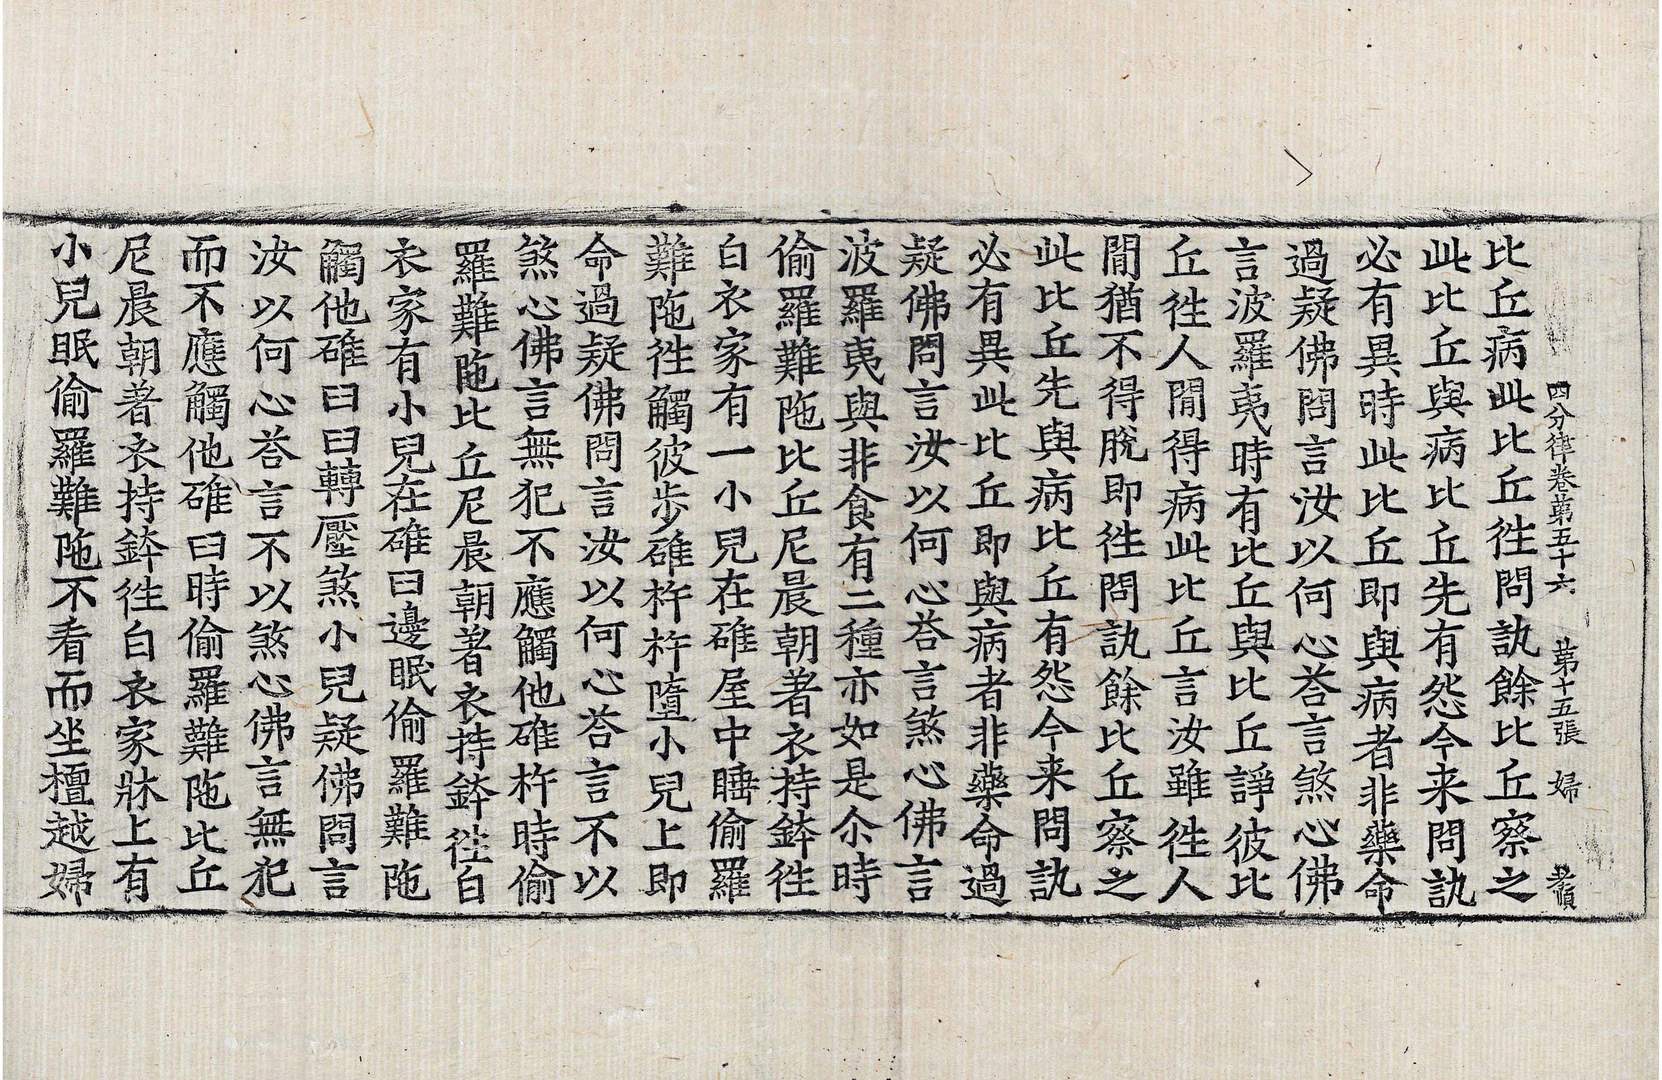 四分律卷第五十六　第十五張　婦
比丘病此比丘徃問訙餘比丘察之
此比丘與病比丘先有怨今来問訙
必有異時此比丘即與病者非藥命
過疑佛問言汝以何心荅言煞心佛
言波羅夷時有比丘與比丘諍彼比
丘徃人閒得病此比丘言汝雖徃人
閒猶不得脫即徃問訙餘比丘察之
此比丘先與病比丘有怨今来問訙
必有異此比丘即與病者非藥命過
疑佛問言汝以何心荅言煞心佛言
波羅夷與非食有二種亦如是尒時
偷羅難陁比丘尼晨朝著衣持鉢徃
白衣家有一小兒在碓屋中睡偷羅
難陁徃觸彼步碓杵杵墮小兒上即
命過疑佛問言汝以何心荅言不以
煞心佛言無犯不應觸他碓杵時偷
羅難陁比丘尼晨朝著衣持鉢徃白
衣家有小兒在碓臼邊眠偷羅難陁
觸他碓臼臼轉壓煞小兒疑佛問言
汝以何心荅言不以煞心佛言無犯
而不應觸他碓臼時偷羅難陁比丘
尼晨朝著衣持鉢徃白衣家牀上有
小兒眠偷羅難陁不看而坐檀越婦